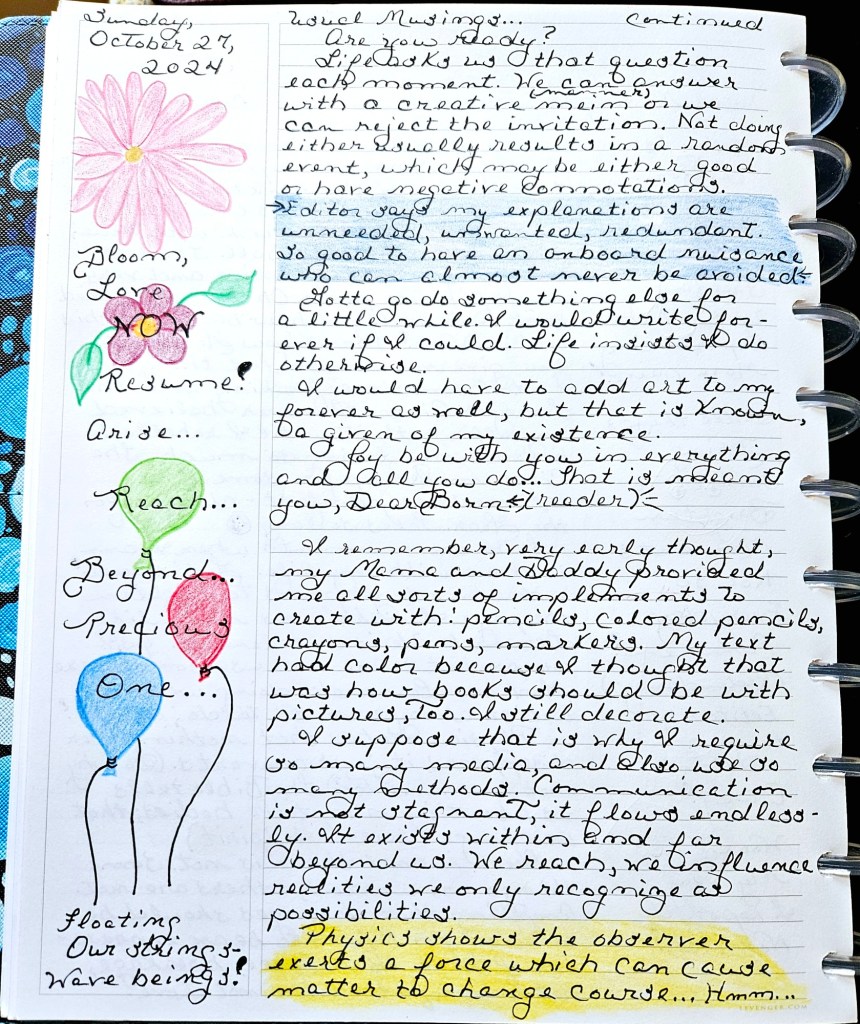 Sunday,
October 27,
2024
Bloom,
Love
NOW
Resume!
Arise...
Reach...
Beyond...
Precious
One...
Floating
Our strings-
Wave beings!
Usual Musings... Continued
Are you ready?
Life asks us that question
each moment. We can answer
(manner)
with a creative mein or we
can reject the invitation. Not doing
either usually results in a random
event, which may be either good
or have negative connotations.
→Editor says my explanations are
unneeded, unwanted, redundant.
So good to have an onboard nuisance
who can almost never be avoided.←
Gotta go do something else for
a little while. I would write for-
ever if I could. Life insists I do
otherwise.
I would have to add art to my
forever as well, but that is known,
a given of my existence.
Joy be with you in everything
and all you do... That is meant
you, Dear Born←(reader)←
I remember, very early thought,
my Mama and Daddy provided
me all sorts of implements to
create with: pencils, colored pencils,
crayons, pens, markers. My text
had color because I thought that
was how books should be with
pictures, too. I still decorate.
I suppose that is why I require
so many media, and also use so
many methods. Communication
is not stagnent, it flows endless-
ly. It exists within and far
beyond us. We reach, we influence
realities we only recognize as
possibilities.
Physics shows the observer
exerts a force which can cause
matter to change course... Hmm...
LEVENGER.COM